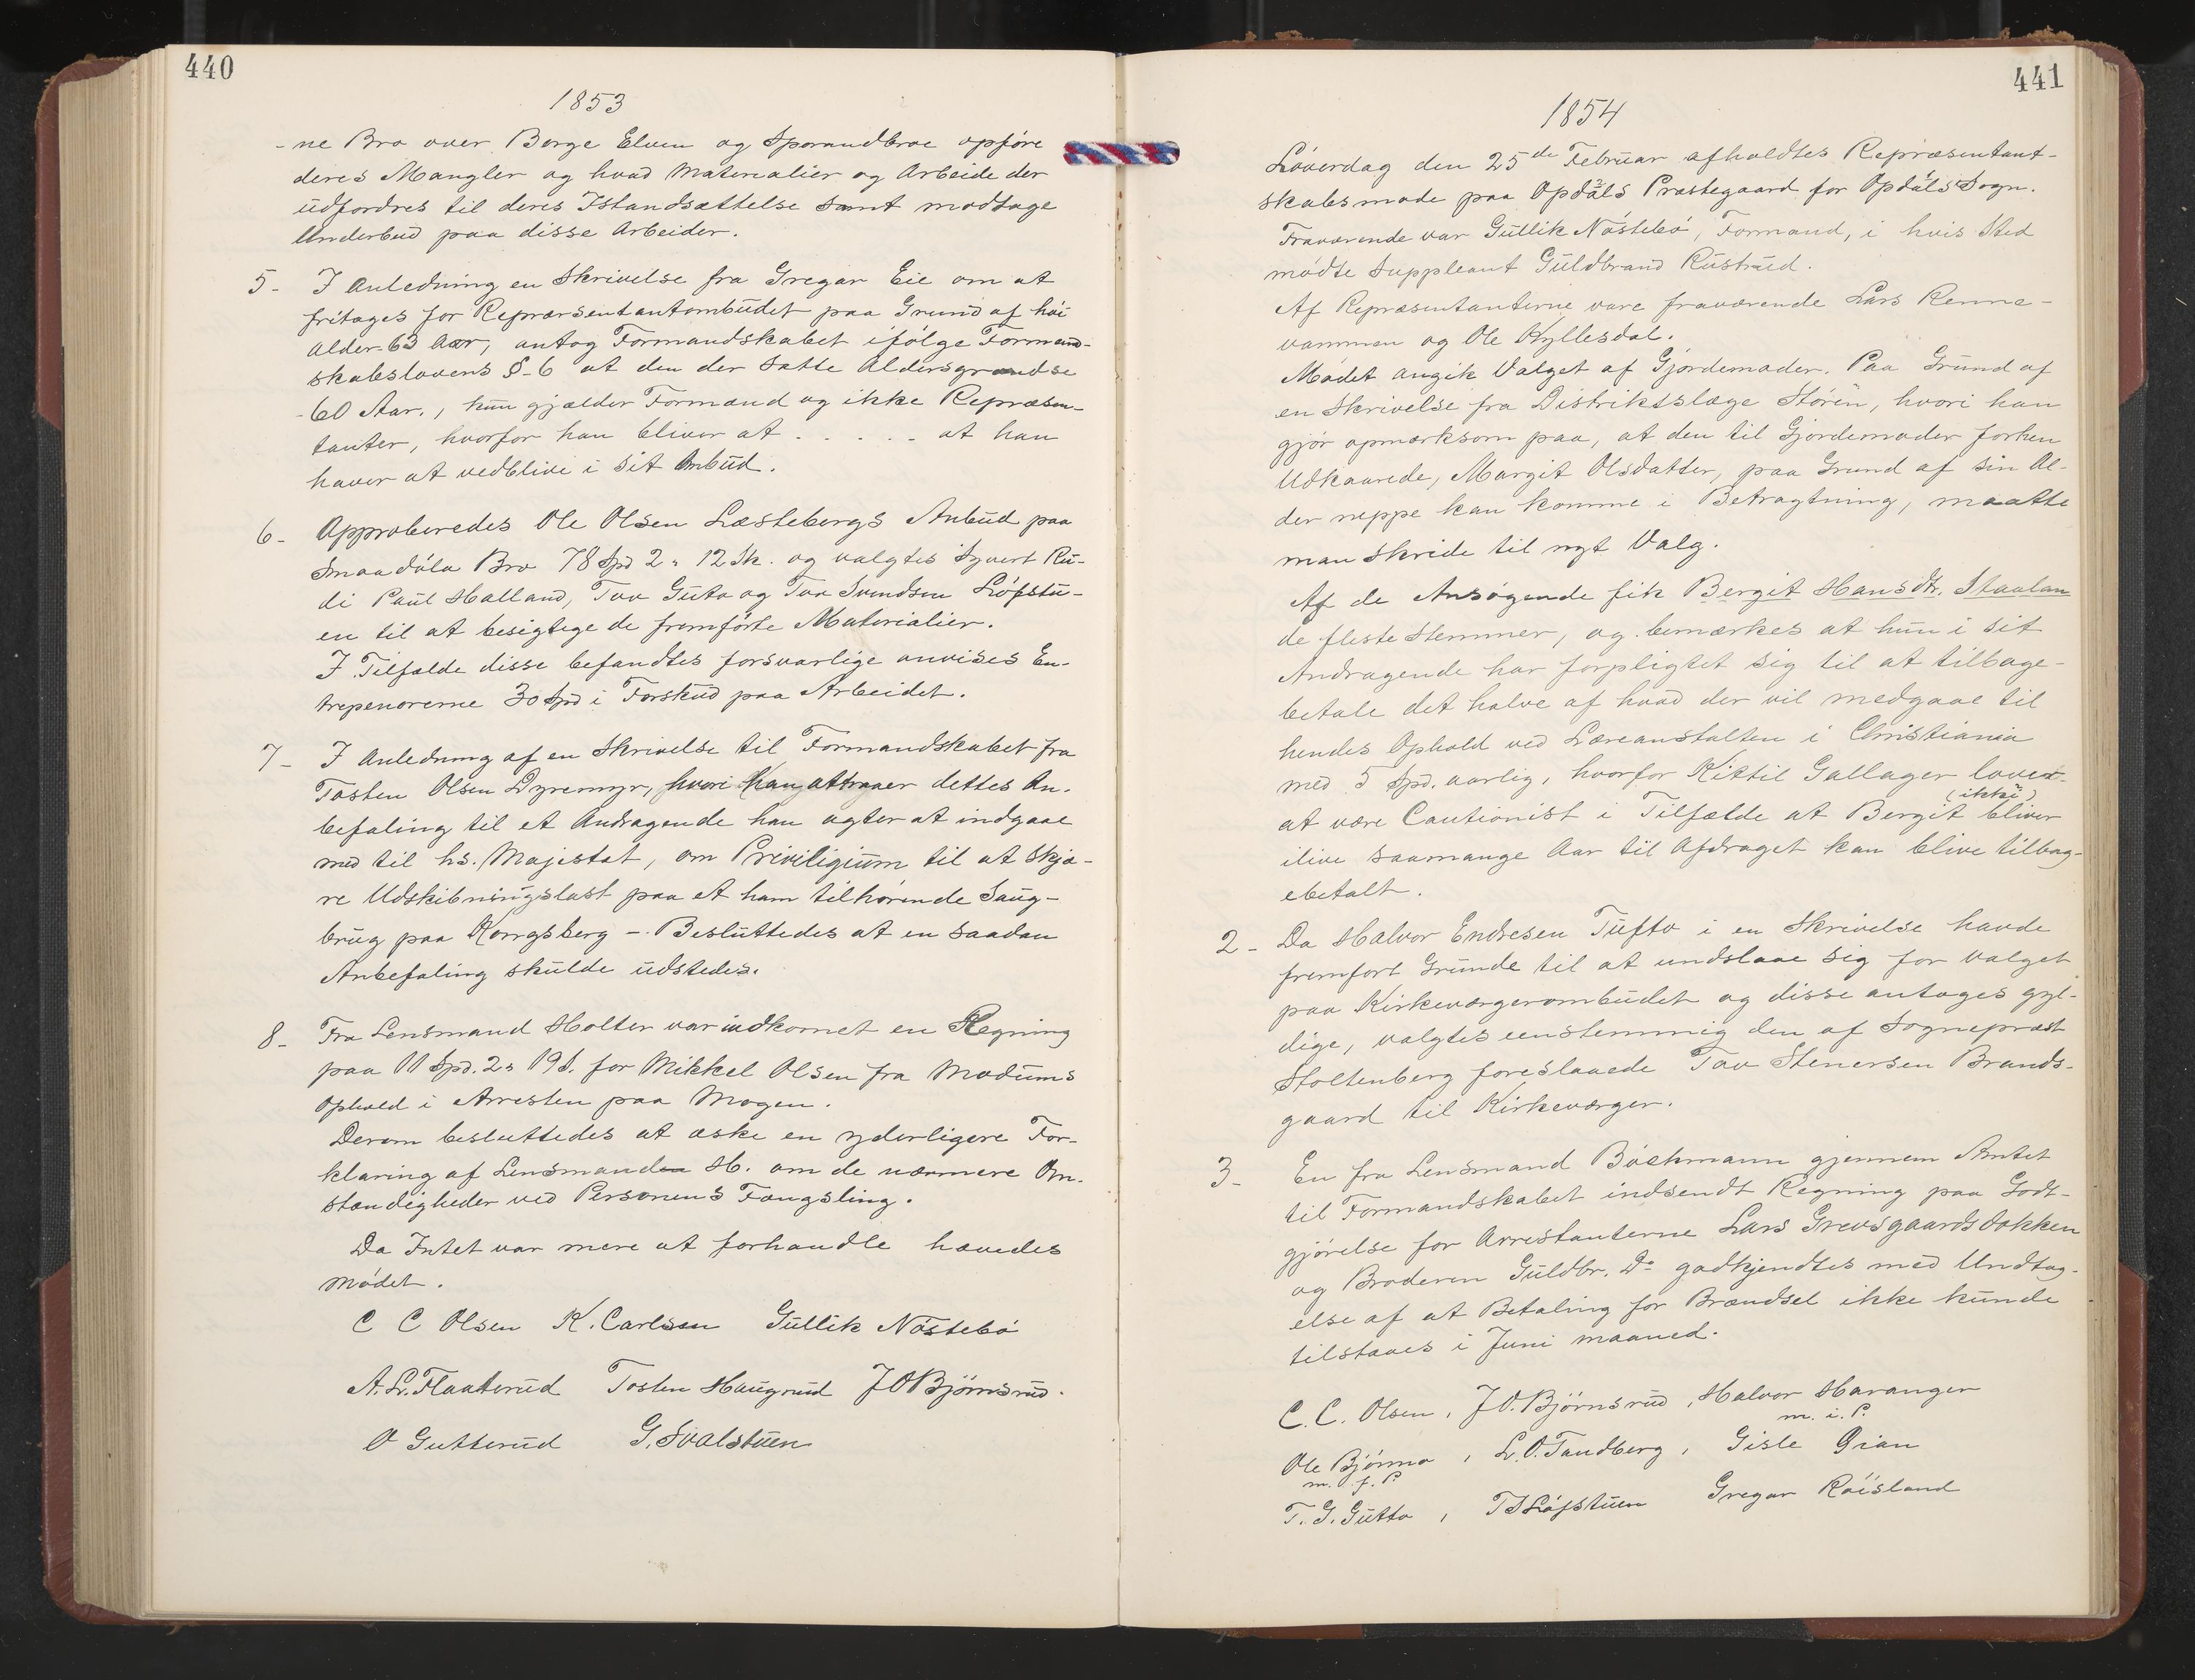 440
1853
-ne Bro over Borge Elven og Sporandbroe opføre
deres Mangler og hvad Materialier og Arbeide der
udfordres til deres Istandsættelse samt modtage
Underbud paa disse Arbeider.
5- I Anledning en Skrivelse fra Gregar Eie om at
fritages for Repræsentantombudet paa Grund af høi
Alder 63 Aar, antog Formandskabet ifølge Formand-
skabslovens §-6 at den der satte Aldersgrændse
-60 Aar., kun gjælder Formænd og ikke Repræsen-
tanter, hvorfor han bliver at . . . . . at han
haver at vedblive i sit Ombud.
6- Approberedes Ole Olsen Læstebergs Anbud paa
Smaadøla Bro 78 Spd 2 " 12 Sk. og valgtes Syvert Ru-
di Paul Halland, Tov Guto og Tov Svendsen Løfstu-
en til at besigtige de fremførte Materialier.
I Tilfælde disse befandtes forsvarlige anvises En-
trepenørerne 30 Spd i Forskud paa Arbeidet.
7- I Anledning af en Skrivelse til Formandskabet fra
Tosten Olsen Dyremyr, hvori han attraaer dettes An-
befaling til et Andragende han agter at indgaae
med til hs. Majestæt, om Priviligium til at skjæ-
re Udskibningslast paa et ham tilhørende Saug-
brug paa Kongsberg -. Besluttedes at en saadan
Anbefaling skulde udstedes.
8- Fra Lensmand Holter var indkomet en Regning
paa 11 Spd. 2 " 19 S. for Mikkel Olsen fra Modums
Ophold i Arresten paa Mogen.
Derom besluttedes at æske en yderligere For-
klaring af Lensmanden H. om de nærmere Om-
stændigheder ved Personens Fængsling.
Da Intet var mere at forhandle hævedes
Mødet.
C C Olsen K. Carlsen Gullik Nøstebø
A. L. Flaaterud Tosten Haugrud J O Bjørnsrud.
O Gutterud G. Svalstuen
441
1854
Løverdag den 25de Februar afholdtes Repræsentant-
skabsmøde paa Opdals Præstegaard for Opdals Sogn.
Fraværende var Gullik Nøstebø, Formand, i hvis Sted
mødte Suppleant Guldbrand Rustrud.
Af Repræsentanterne vare fraværende Lars Renne-
vammen og Ole Kyllesdal.
Mødet angik Valget af Gjordemoder. Paa Grund af
en Skrivelse fra Distriktslæge Støren, hvori han
gjør opmærksom paa, at den til Gjordemoder forhen
Udkaarede, Margit Olsdatter, paa Grund af sin Al-
der neppe kan komme i Betragtning, maatte
man skride til nyt Valg.
Af de Ansøgende fik Bergit Hansdtr. Staalan
de fleste Stemmer, og bemærkes at hun i sit
Andragende har forpligtet sig til at tilbage-
betale det halve af hvad der vil medgaae til
hendes Ophold ved Læreanstalten i Christiania
med 5 Spd. aarlig, hvorfor Kittil Gallager lover
at være Cautionist i Tilfælde at Bergit (ikke) bliver
ilive saamange Aar til Afdraget kan blive tilbag-
ebetalt.
2- Da Halvor Endresen Tufto i en Skrivelse havde
fremført Grunde til at undslaae sig for Valget
paa Kirkeværgerombudet og disse antoges gyl-
dige, valgtes eenstemmig den af Sognepræst
Stoltenberg foreslaaede Tov Stenersen Brands-
gaard til Kirkeværger.
3- En fra Lensmand Bøckmann gjennem Amtet
til Formandskabet indsendt Regning paa Godt-
gjørelse for Arrestanterne Lars Grevsgaardsbakken
og Broderen Guldbr. Do godkjendtes med Undtag-
else af at Betaling for Brændsel ikke kunde
tilstaaes i Juni maaned.
C. C. Olsen, J O. Bjørnsrud, Halvor Haranger
m. i. P.
Ole Bjønno, L. O. Tandberg, Gisle Qrian
m. f. P.
T. G. Gutto, T S Løfstuen Gregar Røisland